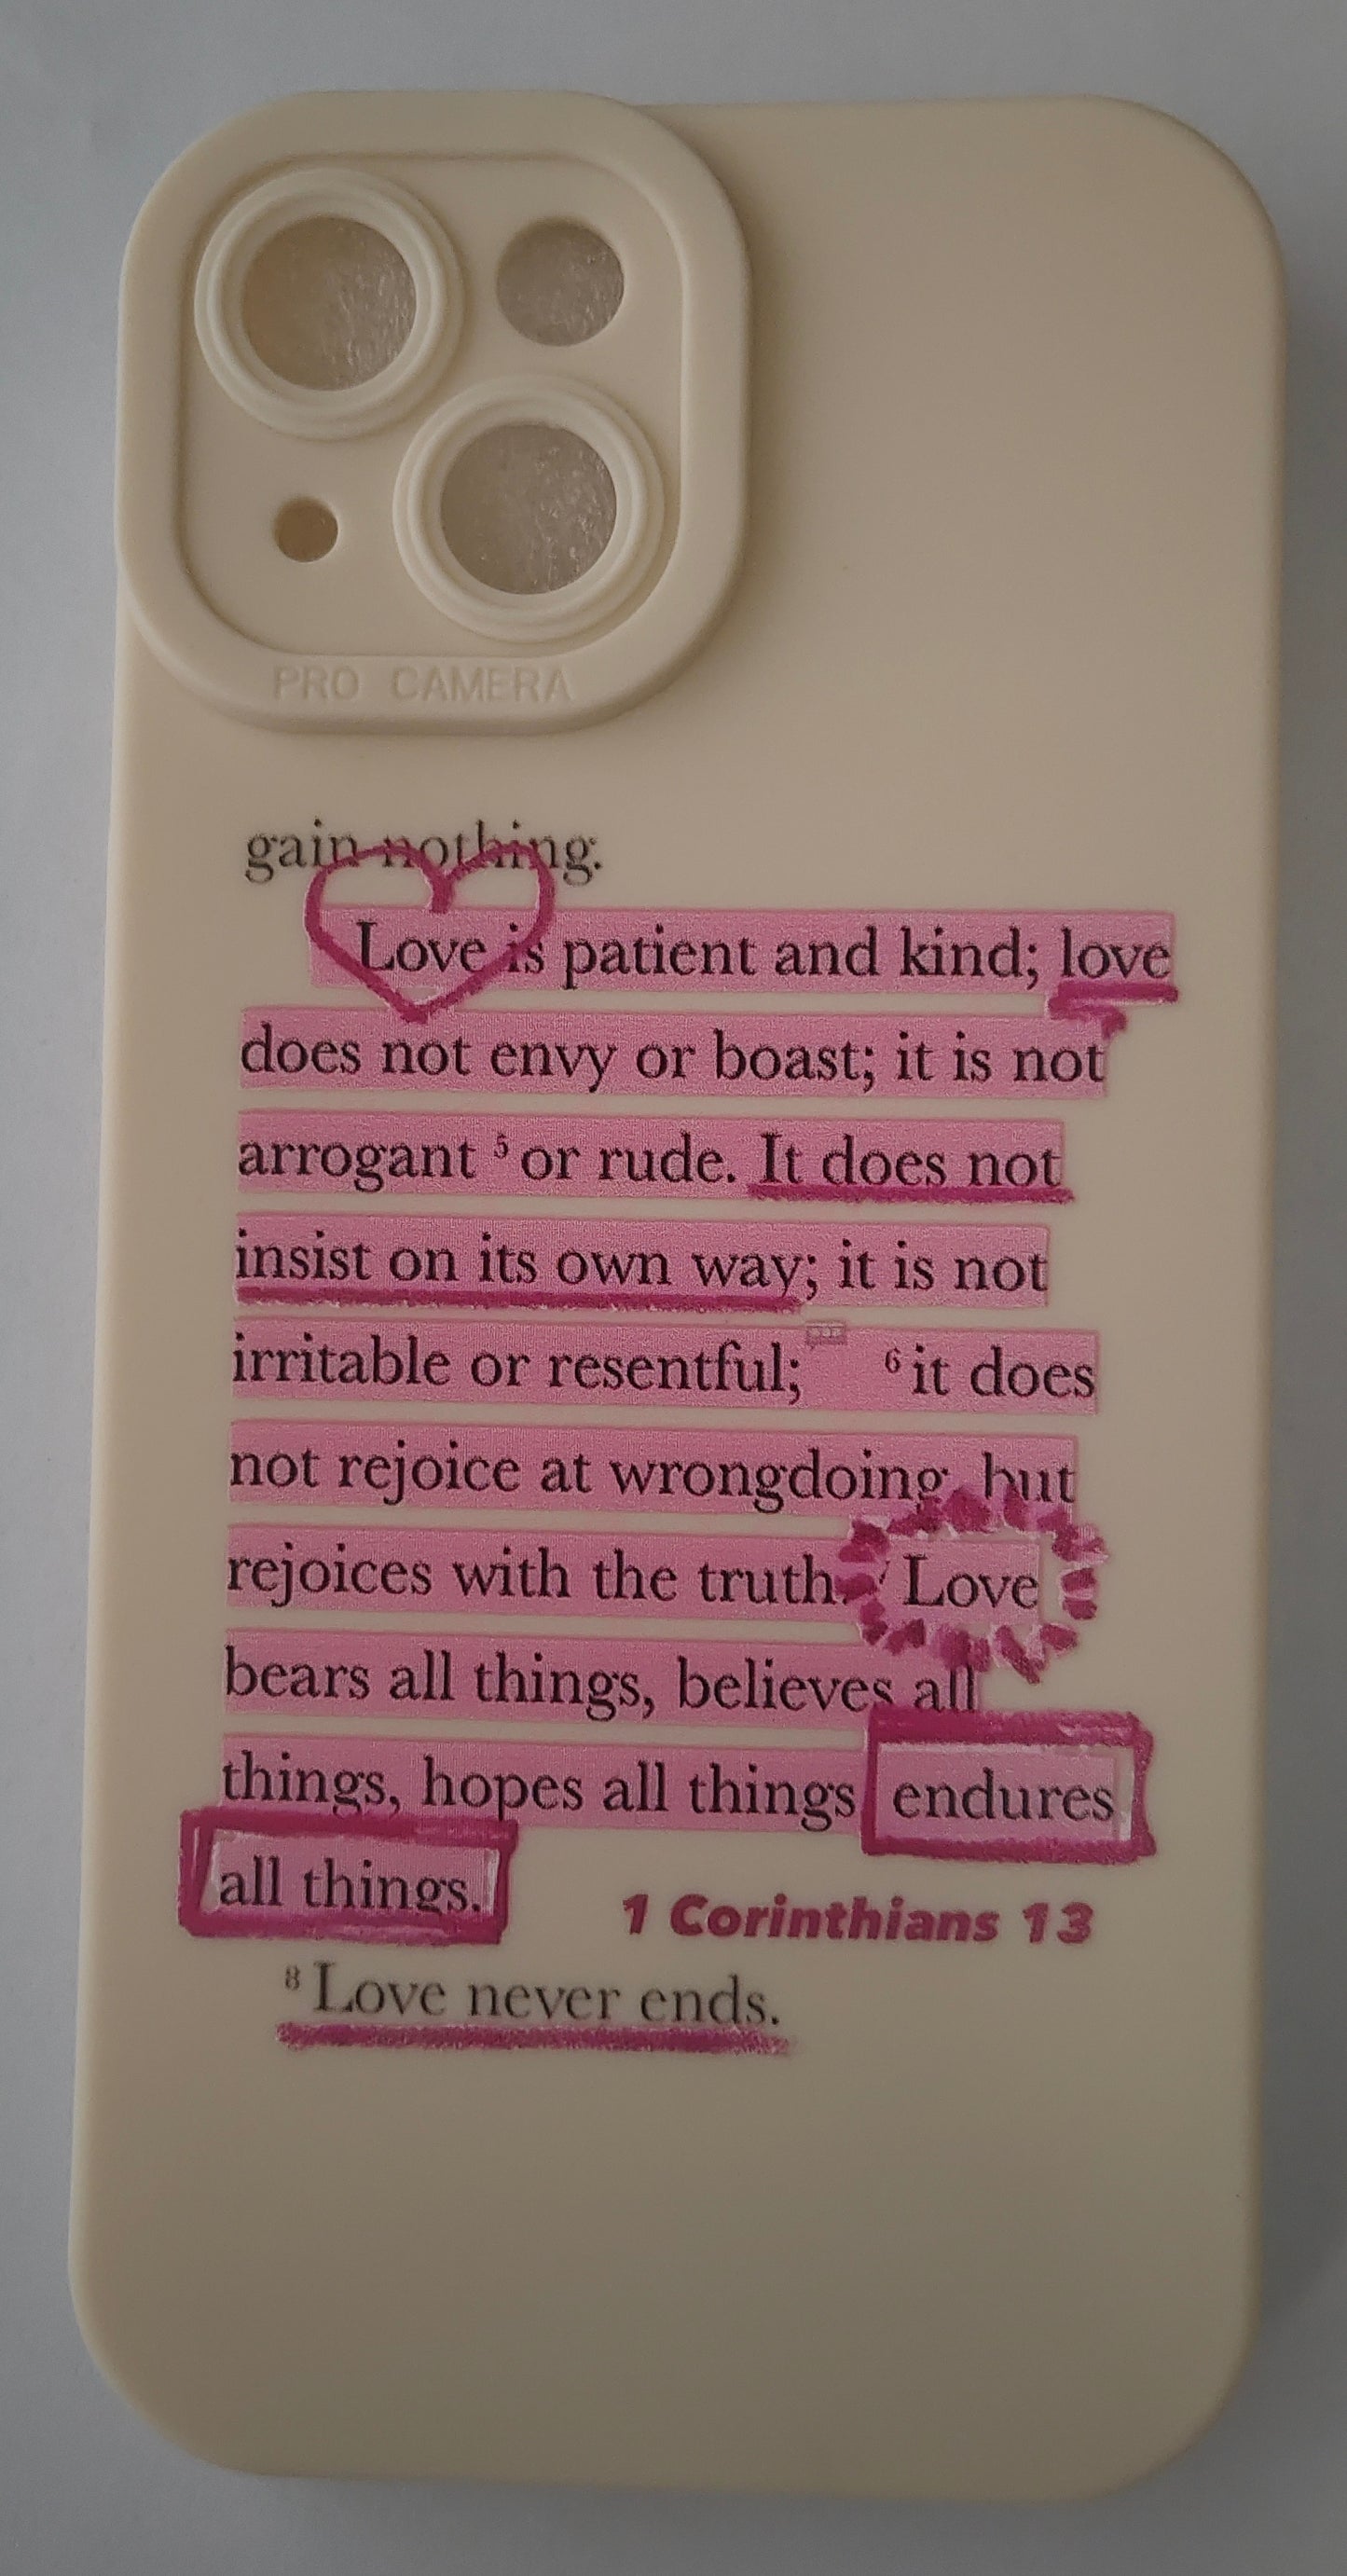 PRO CAMERA
gain nothing.
Love is patient and kind; love
does not envy or boast; it is not
arrogant ⁵ or rude. It does not
insist on its own way; it is not
irritable or resentful; ⁶ it does
not rejoice at wrongdoing, but
rejoices with the truth. Love
bears all things, believes all
things, hopes all things endures
all things.
1 Corinthians 13
⁸ Love never ends.